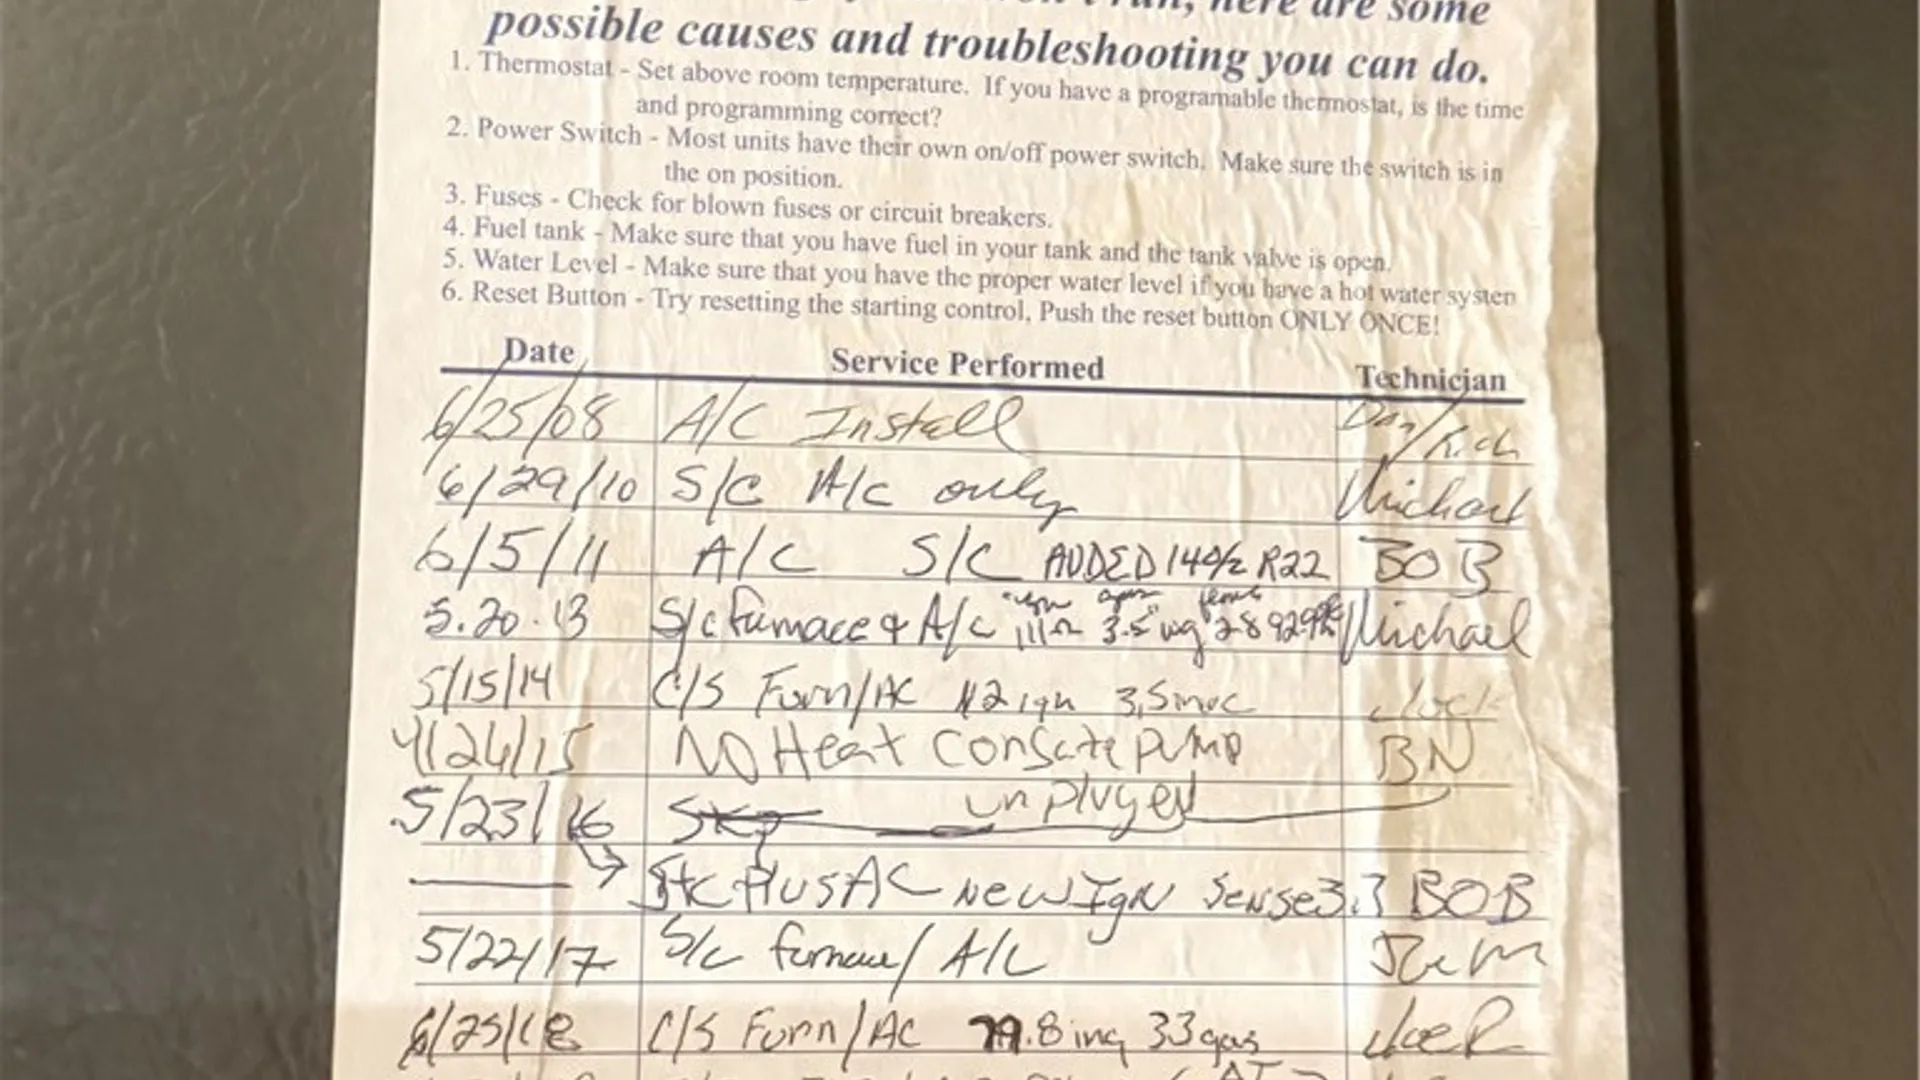 here are some
possible causes and troubleshooting you can do.
1. Thermostat - Set above room temperature. If you have a programable thermostat, is the time
and programming correct?
2. Power Switch - Most units have their own on/off power switch. Make sure the switch is in
the on position.
3. Fuses - Check for blown fuses or circuit breakers.
4. Fuel tank - Make sure that you have fuel in your tank and the tank valve is open.
5. Water Level - Make sure that you have the proper water level if you have a hot water systen
6. Reset Button - Try resetting the starting control, Push the reset button ONLY ONCE!
Date Service Performed Technician
6/25/08 A/C Install Dan/Rich
6/29/10 S/C A/C only Michael
6/5/11 A/C S/C ADDED 14oz R22 BOB
5.20.13 S/c furnace & A/C 111Ω 3.5"wg Michael
5/15/14 C/S Furn/AC 112 ign 3,5 Jack
4/26/15 NO Heat pump BN
unpluged
5/23/16
plus AC New Ign Sense 3.3 BOB
5/22/17 S/c furnace/A/C
6/25/18 C/S Furn/AC 79.8 ing 33 gas Joe R